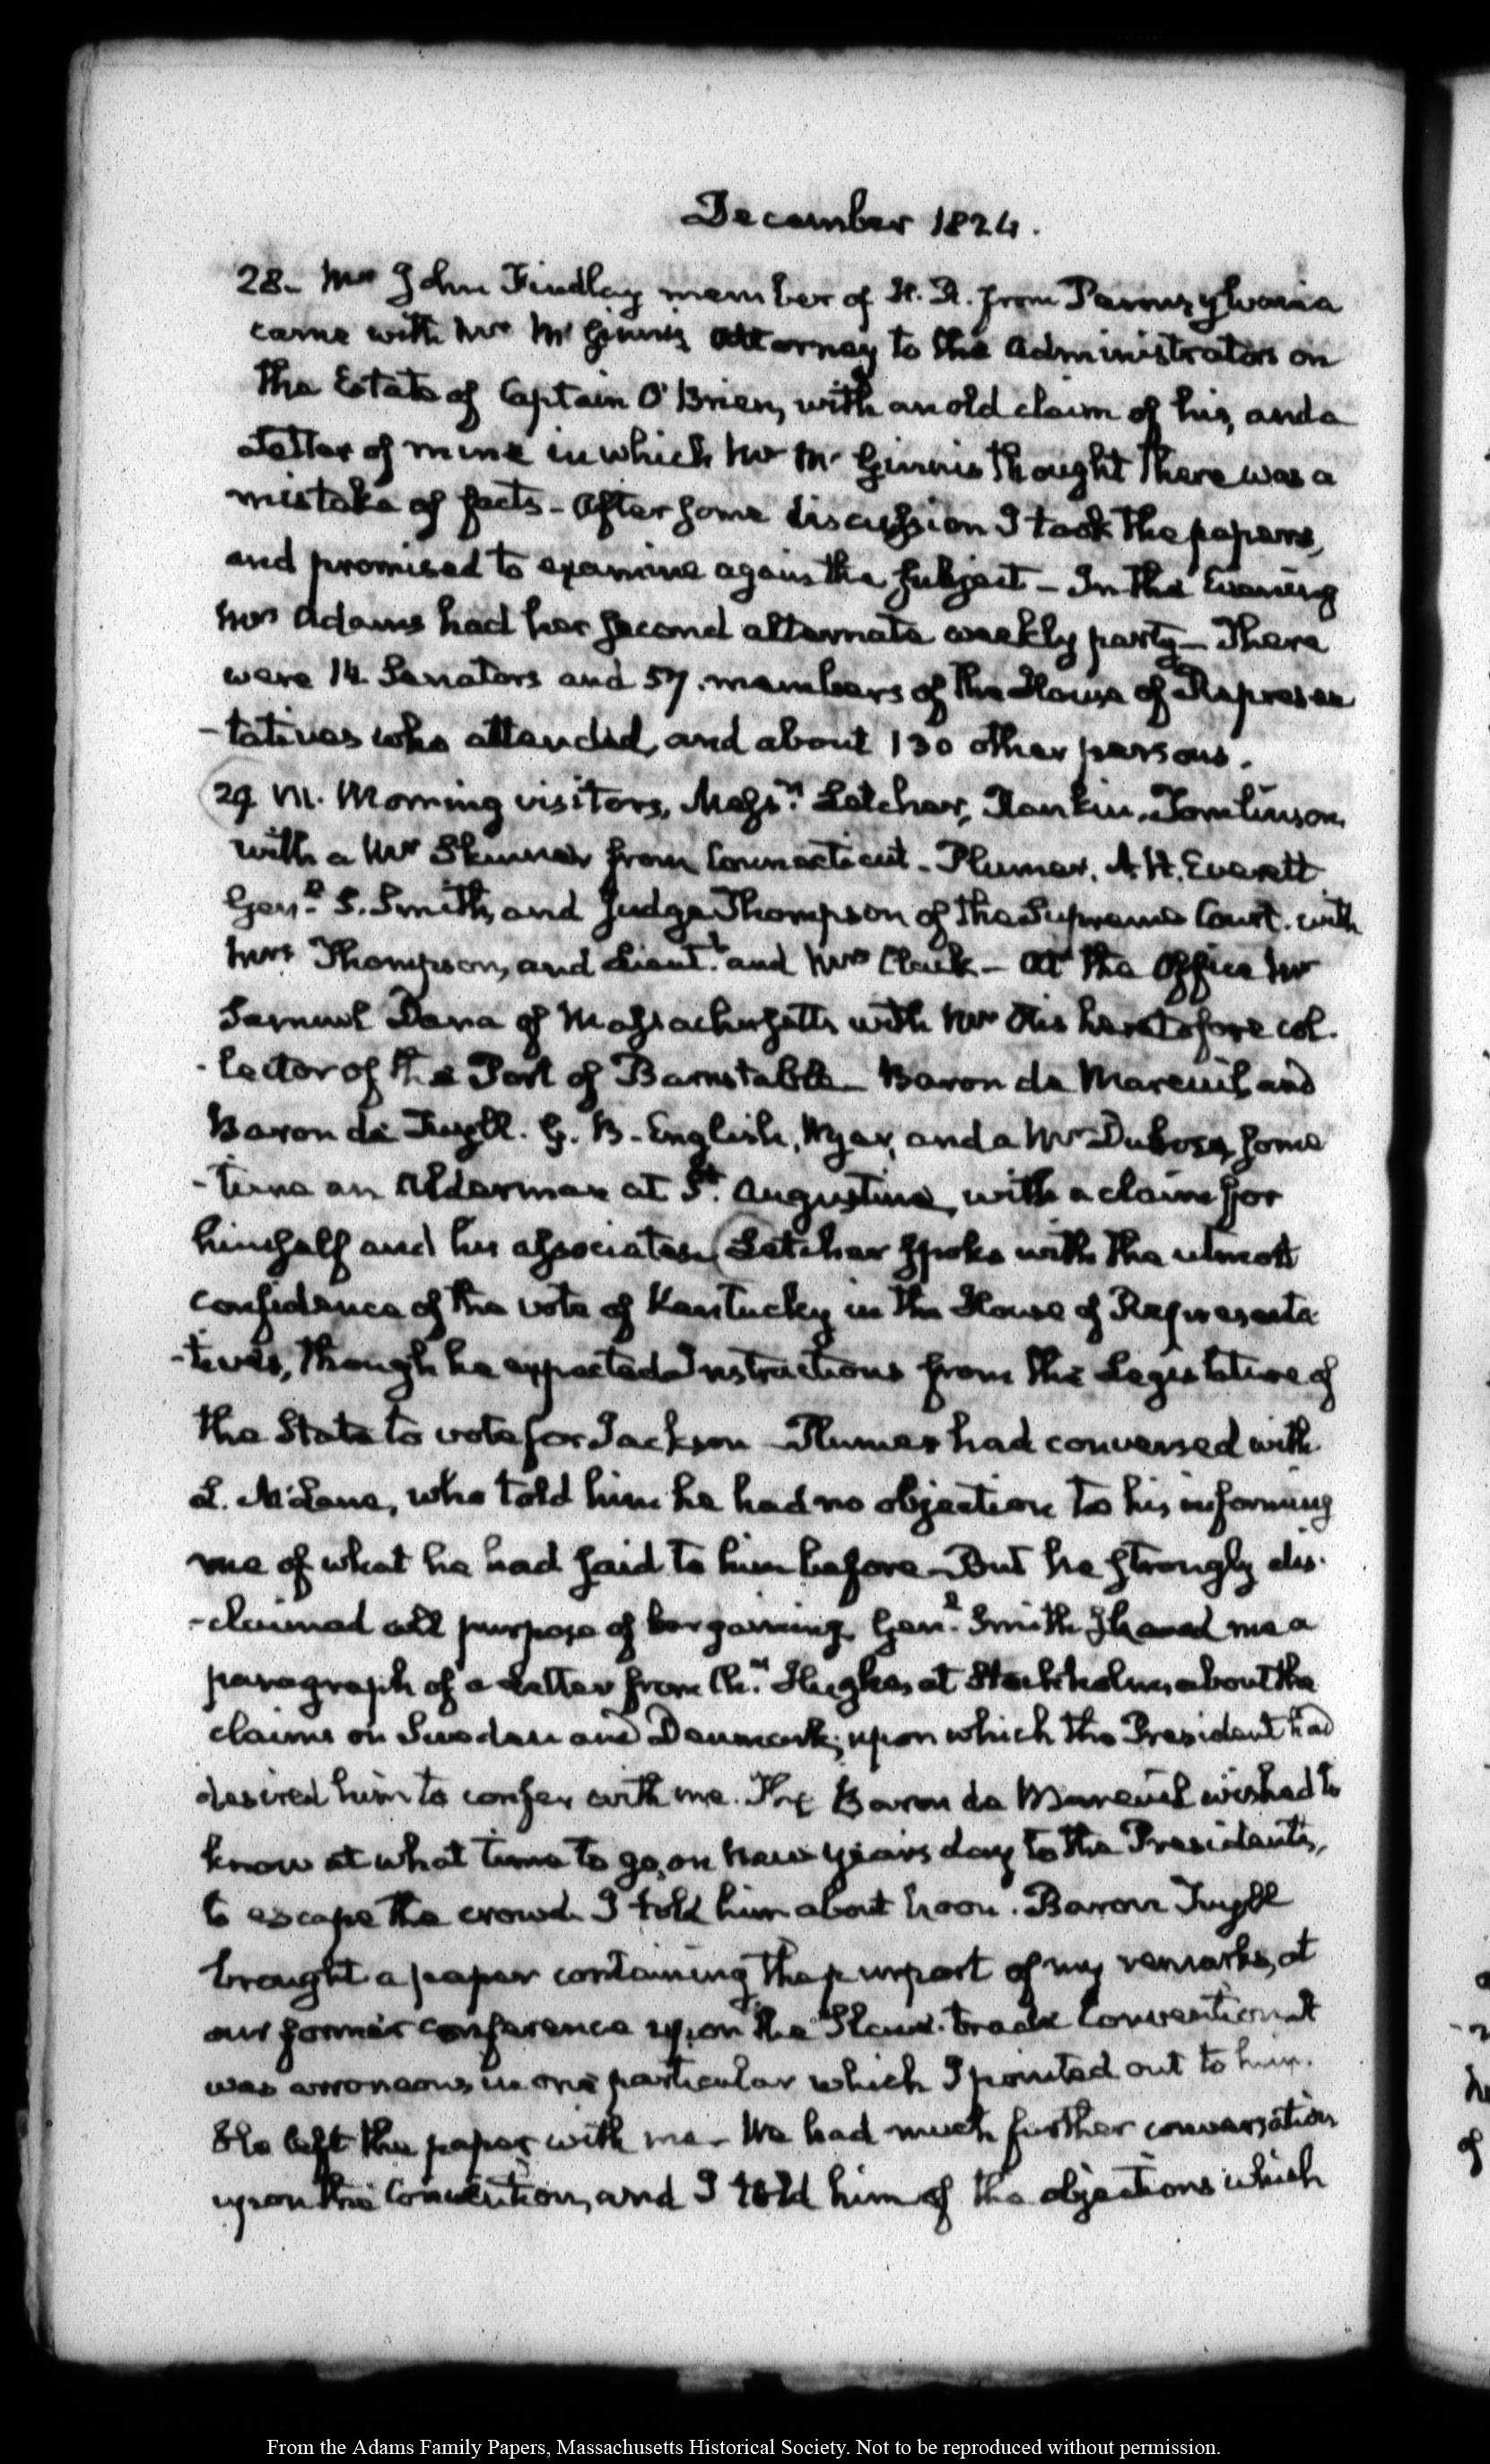 December 1824.
28. Mr John Findlay member of H. R. from Pennsylvania
came with Mr McGinnis Attorney to the Administrators on
the Estate of Captain O'Brien, with an old claim of his, and a
Letter of mine in which Mr McGinnis thought there was a
mistake of facts - After some discussion I took the papers,
and promised to examine again the subject - In the Evening
Mrs Adams had her second alternate weekly party - There
were 14 Senators and 57 members of the House of Represen
-tatives who attended, and about 130 other persons.
29. VI. Morning visitors, Messrs Letcher, Rankin, Tomlinson,
with a Mr Skinner from Connecticut - Plumer, A. H. Everett
Genl S. Smith, and Judge Thompson of the Supreme Court. with
Mrs Thompson, and Lieutt and Mrs Clack - At the Office Mr
Samuel Dana of Massachusetts with Mr Otis heretofore col-
-lector of the Port of Barnstable - Baron de Mareuil and
Baron de Tuyll. G. B. English, Wyer, and a Mr Dubose, some
-time an Alderman at St. Augustine, with a claim for
himself and his associates. Letcher spoke with the utmost
confidence of the vote of Kentucky in the House of Representa
-tives, though he expected Instructions from the Legislature of
the State to vote for Jackson - Plumer had conversed with
L. McLane, who told him he had no objection to his informing
me of what he had said to him before - But he strongly dis-
-claimed all purpose of bargaining. Genl Smith shewed me a
paragraph of a Letter from Chr Hughes at Stockholm, about the
claims on Sweden and Denmark; upon which the President had
desired him to confer with me. The Baron de Mareuil wished to
know at what time to go, on New Years day to the Presidents,
to escape the crowd. I told him about Noon. Baron Tuyll
brought a paper containing the purport of my remarks, at
our former conference upon the Slave-trade Convention It
was erroneous in one particular which I pointed out to him.
He left the paper with me - We had much further conversation
upon the Convention, and I told him of the objections which
From the Adams Family Papers, Massachusetts Historical Society. Not to be reproduced without permission.